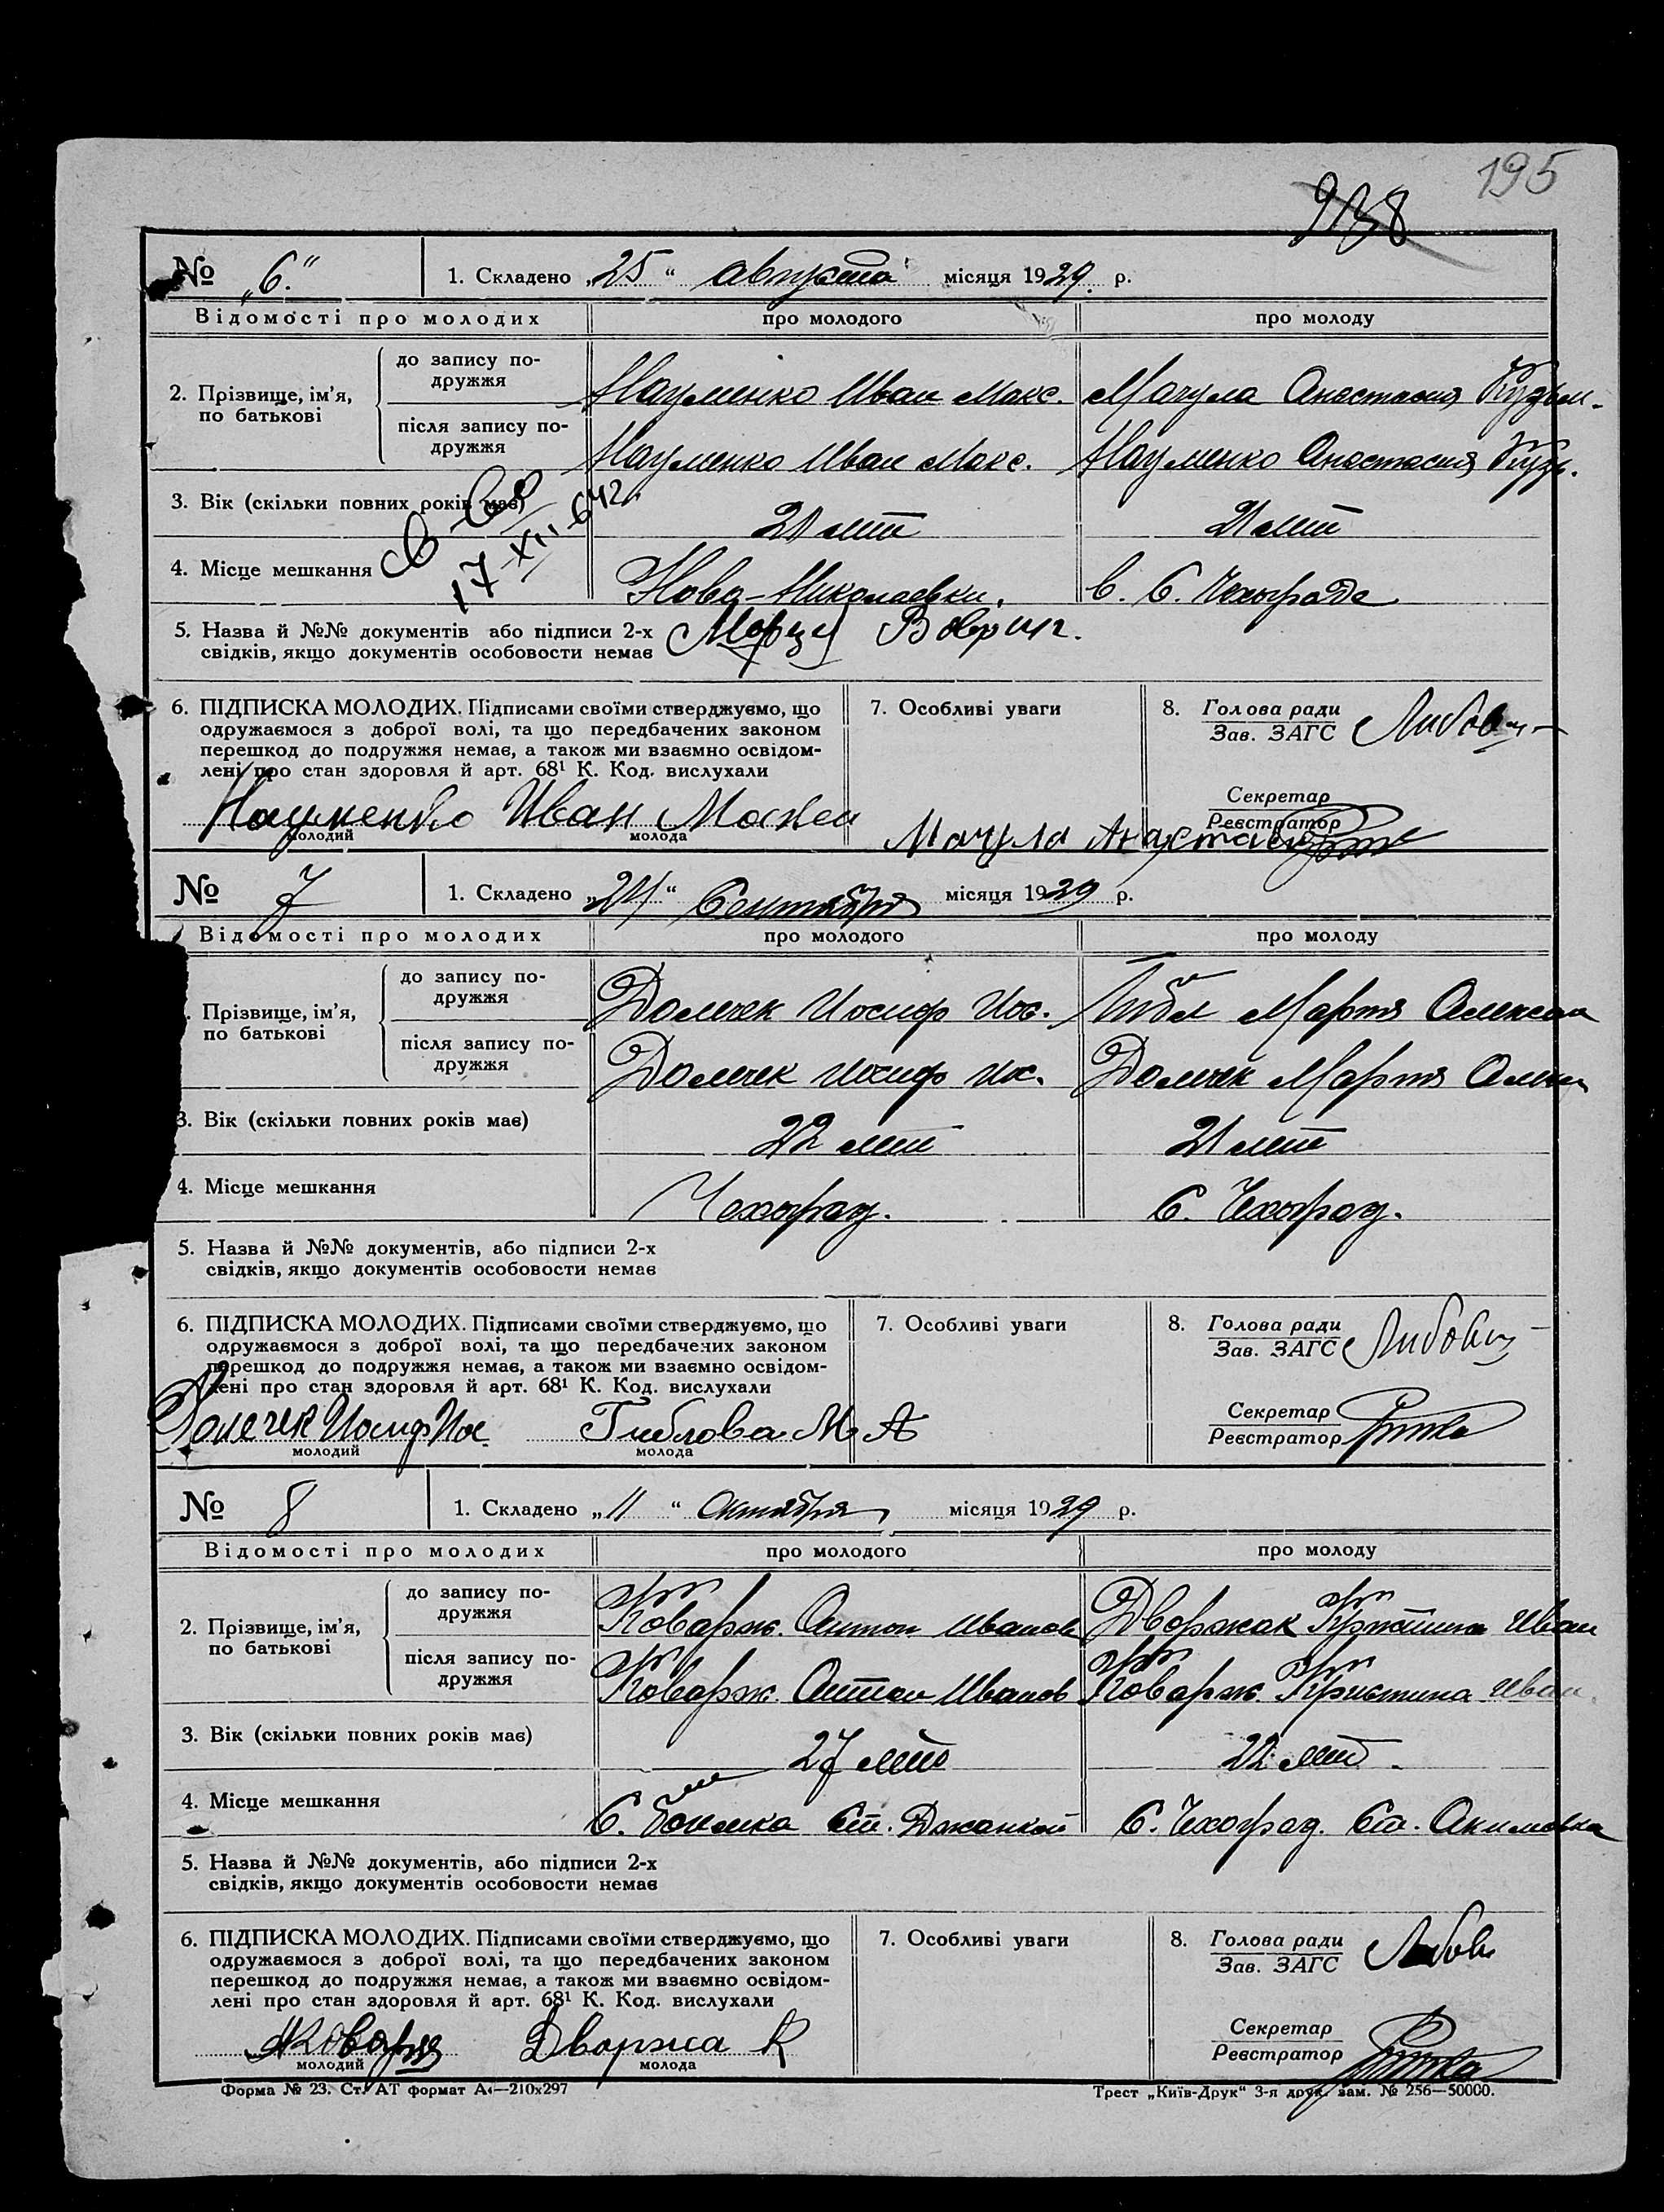 195
238
№ „6.“ 1. Складено „25“ августа місяця 1929. р.
Відомості про молодих про молодого про молоду
2. Прізвище, ім'я, по батькові
до запису подружжя Науменко Иван Макс. Мачула Анастасия Кузьм.
після запису подружжя Науменко Иван Макс. Науменко Анастасия Кузь.
3. Вік (скільки повних років має) 21 лет 21 лет
св-во
17-XII-64г.
4. Місце мешкання Ново-Николаевки. в. с. Чехограде
5. Назва й №№ документів або підписи 2-х
свідків, якщо документів особовости немає
6. ПІДПИСКА МОЛОДИХ. Підписами своїми стверджуємо, що 7. Особливі уваги 8. Голова ради
одружаємося з доброї волі, та що передбачених законом Зав. ЗАГС
перешкод до подружжя немає, а також ми взаємно освідом-
лені про стан здоровля й арт. 68¹ К. Код. вислухали
Секретар
Реєстратор
Науменко Иван Мачула
молодий молода
№ 7 1. Складено „24“ Сентября місяця 1929 р.
Відомості про молодих про молодого про молоду
Прізвище, ім'я, по батькові
до запису подружжя Долечек Иосиф Иос. Гибл Марта Алексан
після запису подружжя Долечек Иосиф Ис. Долечек Марта
3. Вік (скільки повних років має) 22 лет 21 лет
4. Місце мешкання Чехоград. С. Чехоград.
5. Назва й №№ документів, або підписи 2-х
свідків, якщо документів особовости немає
6. ПІДПИСКА МОЛОДИХ. Підписами своїми стверджуємо, що 7. Особливі уваги 8. Голова ради
одружаємося з доброї волі, та що передбачених законом Зав. ЗАГС
перешкод до подружжя немає, а також ми взаємно освідом-
лені про стан здоровля й арт. 68¹ К. Код. вислухали
Секретар
Реєстратор
Долечек Иосиф Ис. Гиблова М А
молодий молода
№ 8 1. Складено „11“ Октября місяця 1929 р.
Відомості про молодих про молодого про молоду
2. Прізвище, ім'я, по батькові
до запису подружжя Коварж. Антон Иванов Дворжак Иван
після запису подружжя Коварж. Антон Иванов Коварж Кристина Иван.
3. Вік (скільки повних років має) 27 лет 22 лет.
4. Місце мешкання С. Ст. Джанкой С. Чехоград. Ст. Акимовка
5. Назва й №№ документів, або підписи 2-х
свідків, якщо документів особовости немає
6. ПІДПИСКА МОЛОДИХ. Підписами своїми стверджуємо, що 7. Особливі уваги 8. Голова ради
одружаємося з доброї волі, та що передбачених законом Зав. ЗАГС
перешкод до подружжя немає, а також ми взаємно освідом-
лені про стан здоровля й арт. 68¹ К. Код. вислухали
Секретар
Реєстратор
Дворжа К
молодий молода
Форма № 23. Ст. АТ формат А₄—210х297 Трест „Київ-Друк“ 3-я друк. зам. № 256—50000.